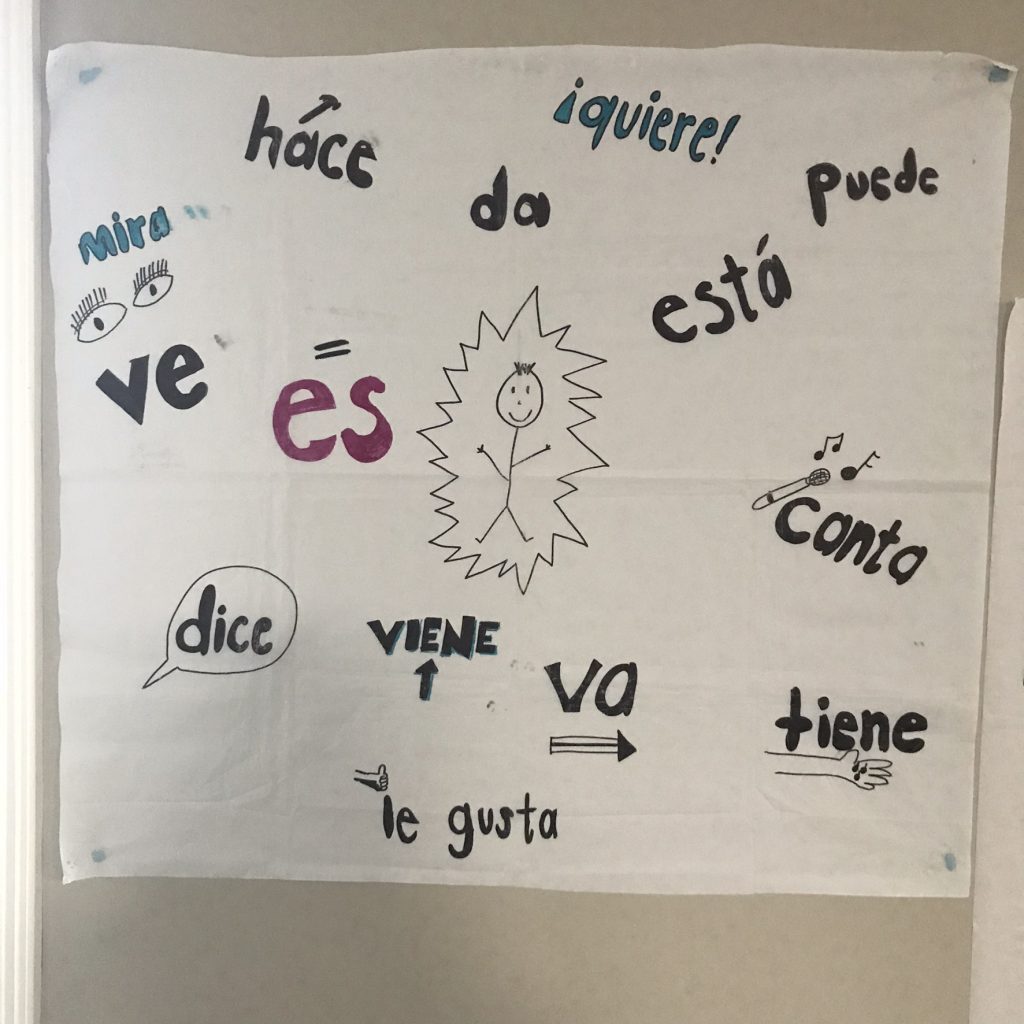 ¡quiere!
háce
da
puede
mira
está
ve
=
es
canta
dice
VIENE
va
tiene
le gusta